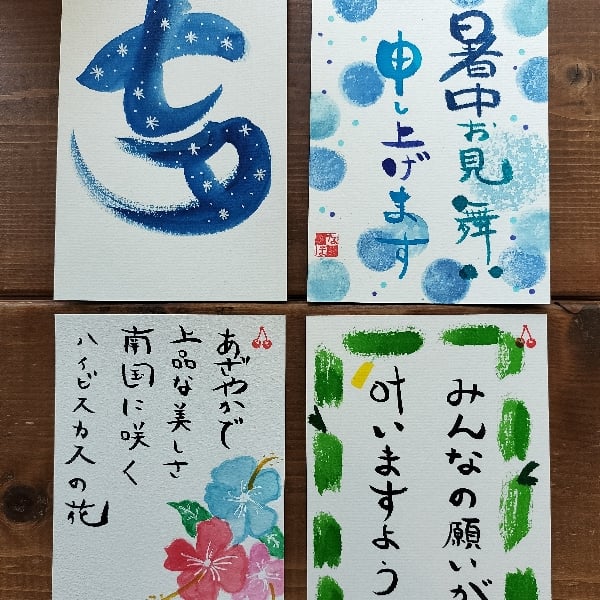 七夕
暑中お見舞
申し上げます
あざやかで
上品な美しさ
南国に咲く
ハイビスカスの花
みんなの願いが
叶いますよう